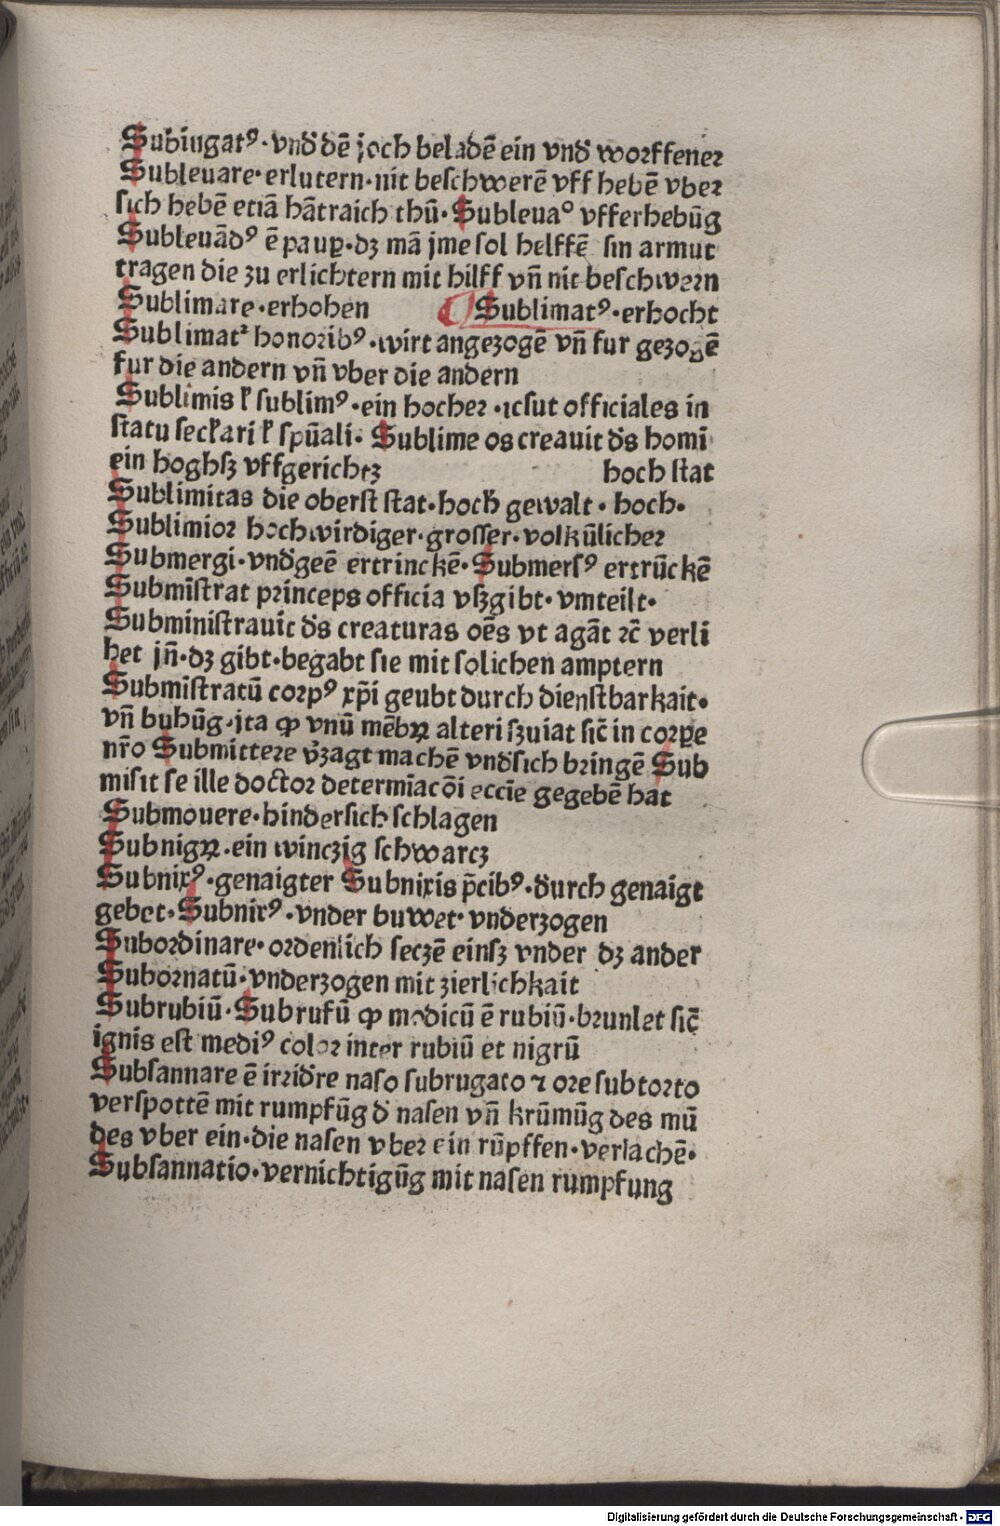 Subiugatꝰ · vnd̕ dē joch beladē ein vnd̕ worffener
Subleuare · erlutern · nit beschwerē vff hebē vber
sich hebē etiā hātraich thū · Subleuaᵒ vfferhebūg
Subleuādꝰ ē paup̲ · dz mā jme sol helffē sin armut
tragen die zu erlichtern mit hilff vn̄ nit beschwern
Sublimare · erhohen Sublimatꝰ · erhocht
Sublimatᷣ honoribꝰ · wirt angezogē vn̄ fur gezogē
fur die andern vn̄ vber die andern
Sublimis ꝉ sublimꝰ · ein hocher · ut officiales in
statu seclari ꝉ spūali · Sublime os creauit d̕s homī
ein hoghſz vffgerichtz hoch stat
Sublimitas die oberst stat · hoch gewalt · hoch ·
Sublimior hochwirdiger · grosser · volkūlicher
Submergi · vnd̕geē ertrinckē · Submersꝰ ertrūckē
Submīstrat princeps officia vſzgibt · vmteilt ·
Subministrauit d̕s creaturas oēs vt agāt ⁊c̄ verli
het jn̄ · dz gibt · begabt sie mit solichen amptern
Submīstratū corpꝰ xp̄i geubt durch dienstbarkait ·
vn̄ buhūg · jta ꝙ vnū mēbꝝ alteri ſzuiat sic̄ in corꝑe
nr̄o Submittere v̕zagt machē vnd̕sich bringē Sub
misit se ille doctor determīacōi eccīe gegebē hat
Submouere · hindersich schlagen
Subnigꝝ · ein winczig schwarcz
Subnixꝰ · genaigter Subnixis p̄cibꝰ · durch genaigt
gebet · Subnixꝰ · vnder buwet · vnderzogen
Subordinare · ordenlich seczē einſz vnder dz ander
Subornatū · vnderzogen mit zierlichkait
Subrubiū · Subrufū ꝙ modicū ē rubiū · brunlet sic̄
ignis est mediꝰ color inter rubiū et nigrū
Subsannare ē irrid̕re naso subrugato ⁊ ore subtorto
verspottē mit rumpfūg d̕ nasen vn̄ krūmūg des mū
des vber ein · die nasen vber ein rūpffen · verlachē ·
Subsannatio · vernichtigūg mit nasen rumpfung
Digitalisierung gefördert durch die Deutsche Forschungsgemeinschaft - DFG